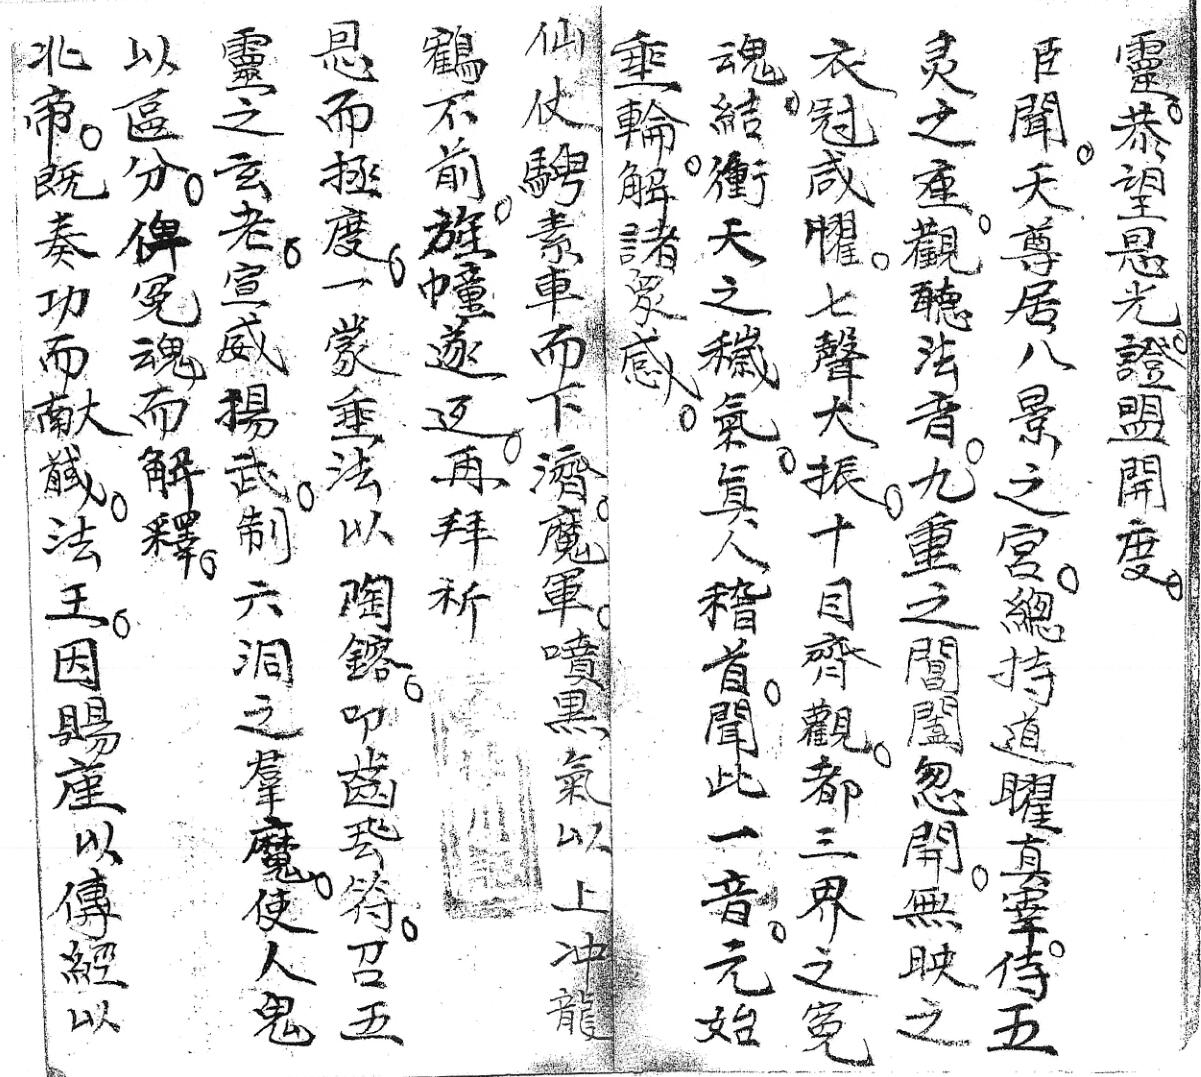 靈。恭望恩光。證盟開度。
臣聞。天尊居八景之宮。總持道曜真宰。侍五
灵之座。觀聽法音。九重之閶闔忽開。無映之
衣冠咸耀。七聲大振。十目齊觀。都三界之冤
魂。結衝天之穢氣。真人稽首。聞此一音。元始
垂輪。解諸衆惑。
仙仗騁素車而下濟。魔軍噴黑氣以上冲。龍
鶴不前。旌幢遂返。再拜祈
恩而拯度。一蒙垂法以陶鎔。叩齒飛符。召五
靈之玄老。宣威揚武。制六洞之羣魔。使人鬼
以區分。俾冤魂而解釋。
北帝。既奏功而献馘。法王。因賜座以傳經以